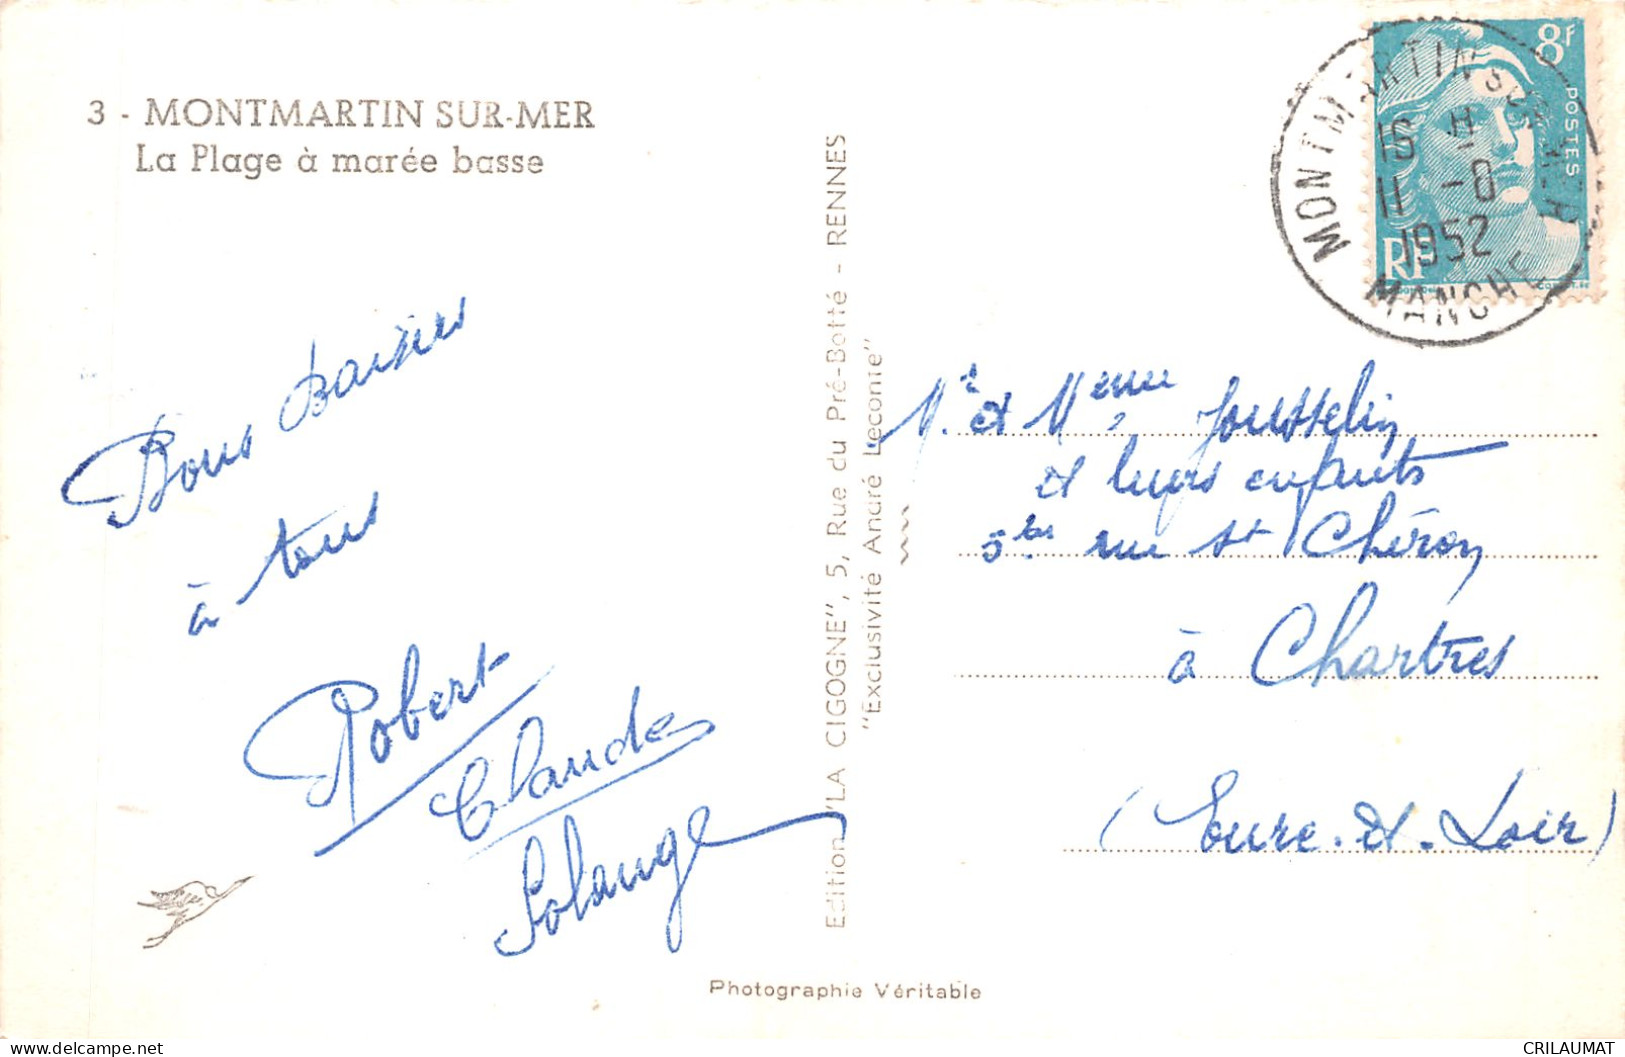 3 - MONTMARTIN SUR-MER
La Plage à marée basse
Bons Baisers
à tous
Robert
Claude
Solange
Edition "LA CIGOGNE", 5, Rue du Pré-Botté - RENNES
"Exclusivité André Leconte"
Photographie Véritable
8F
POSTES
RF
MONTMARTIN SUR MER
16 H
11 -8
1952
MANCHE
Mr et Mme Jousselin
et leurs enfants
5 bis rue St Chéron
à Chartres
(Eure-et-Loir)
delcampe.net
CRILAUMAT